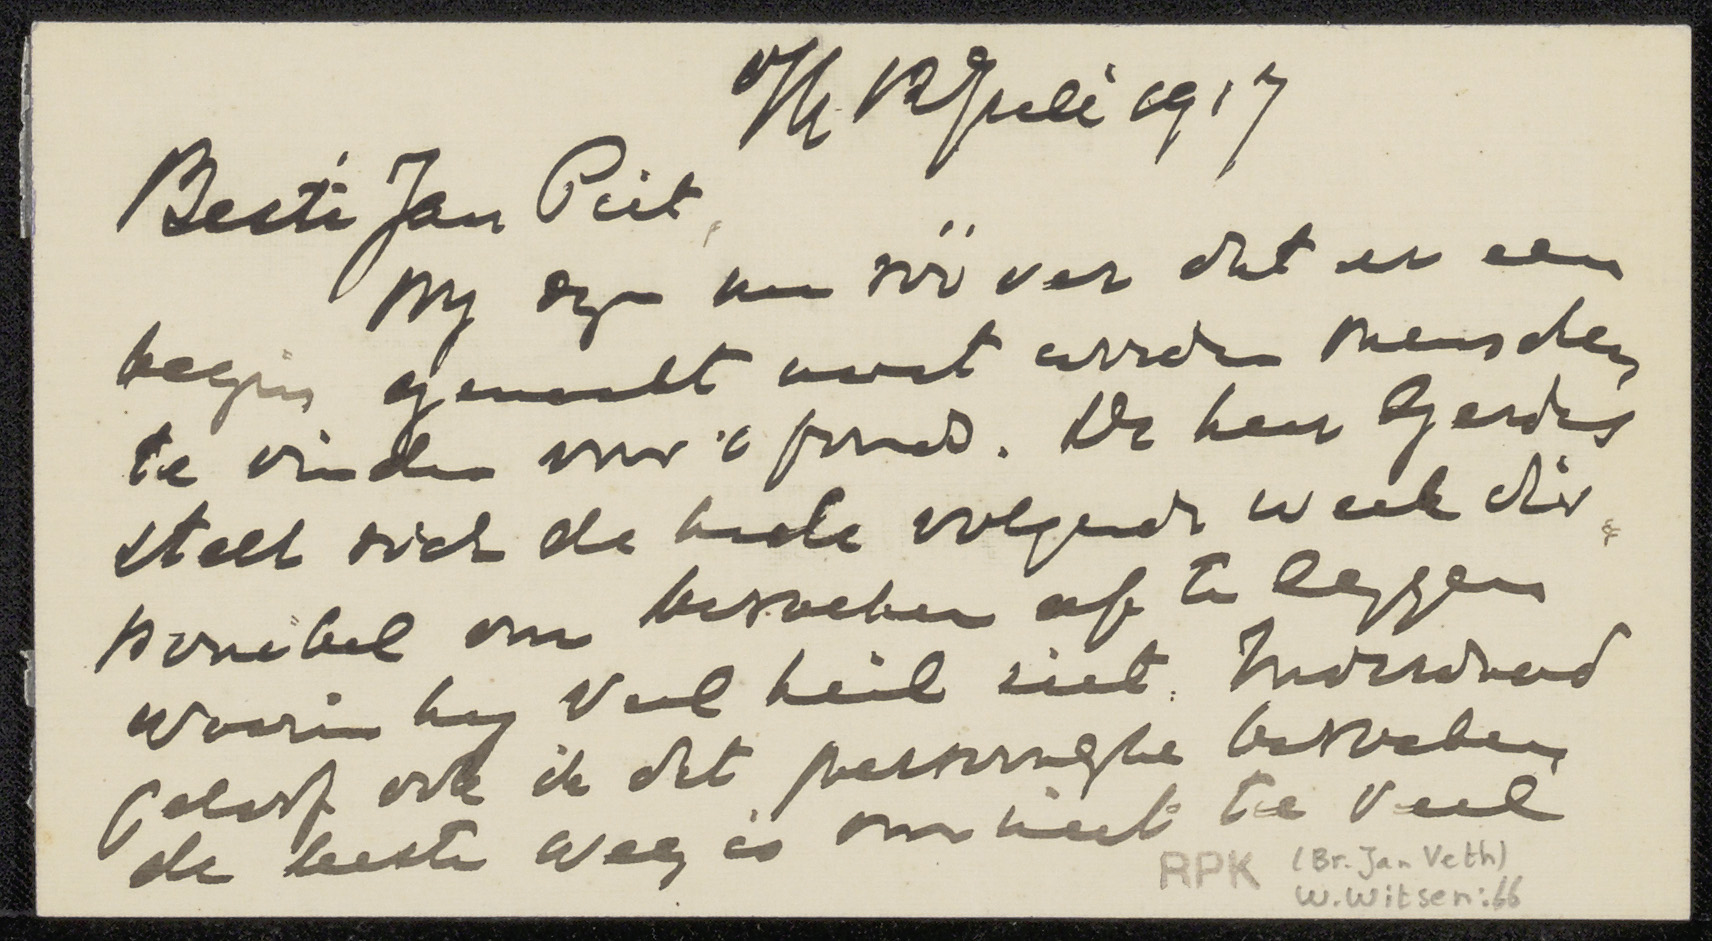 12 Juli 1917
Beste Jan Piet,
Wij zijn nu zóó ver dat er een
begin gemaakt moet worden menschen
te vinden voor 't fonds. De heer Gerdes
stelt zich de heele volgende week dis-
ponibel om bezoeken af te leggen
waarin hij veel heil ziet. Inderdaad
geloof ook ik dat persoonlijke bezoeken
de beste weg is om niet te veel
RPK (Br. Jan Veth)
W. Witsen: 66